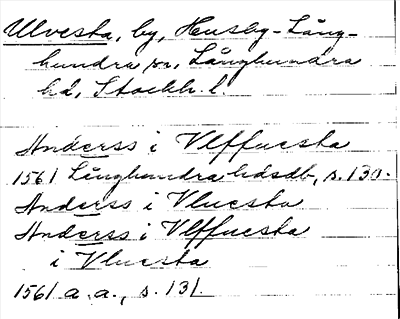 Ulvesta, by, Husby-Lång-
hundra sn, Långhundra
hd, Stockh. l.
Anderss i Vlffuesta
1561 Långhundra hdsdb, s. 130.
Anderss i Vluesta
Anderss i Vlffuesta
i Vluesta
1561 a. a., s. 131.